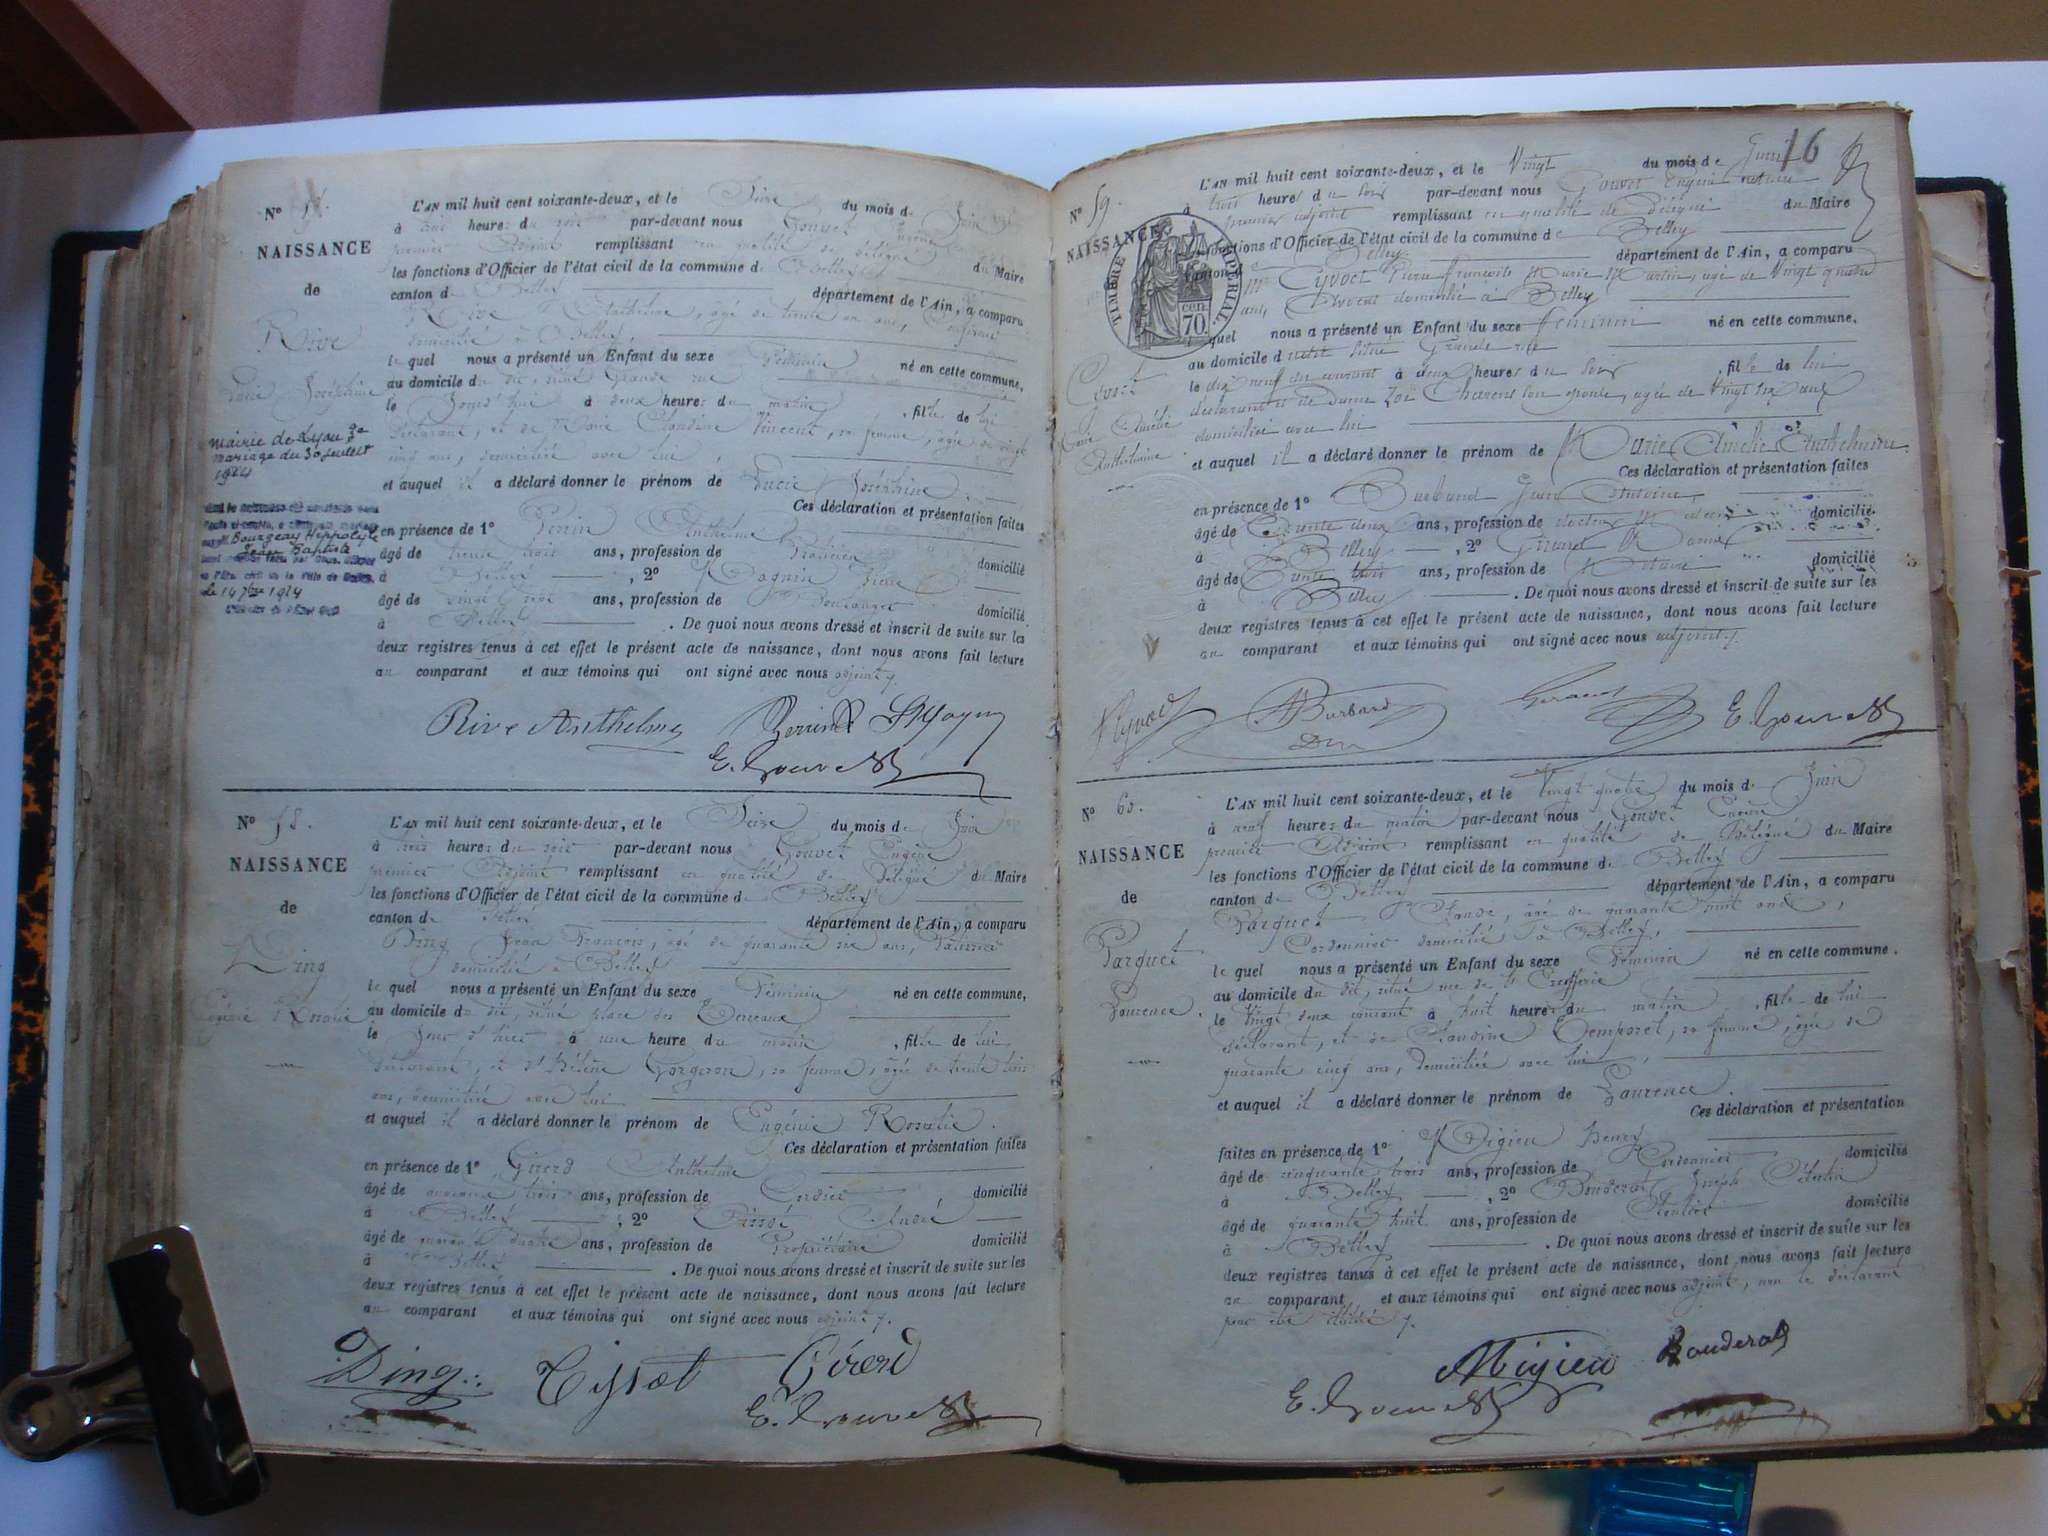 N° 57.
NAISSANCE
de
Rive
Lucie Joséphine
mairie de Lyon 3e
mariage du 30 juillet
1914
Bourgeay Hippolyte
Jean Baptiste
le 14 7bre 1914
L'AN mil huit cent soixante-deux, et le Seize du mois de Juin
à trois heures du soir par-devant nous Gouvet Eugène
premier Adjoint remplissant en qualité de Délégué du Maire
les fonctions d'Officier de l'état civil de la commune de Belley
canton de Belley département de l'Ain, a comparu
Rive Anthelme, âgé de trente un ans,
domicilié à Belley,
lequel nous a présenté un Enfant du sexe Féminin né en cette commune,
au domicile du dit, situé Grande rue
le Jourd'hui à deux heures du matin, fille de lui
déclarant, et de Claudine Vincent, sa femme, âgée de vingt
cinq ans, domiciliée avec lui,
et auquel il a déclaré donner le prénom de Lucie Joséphine
Ces déclaration et présentation faites
en présence de 1° Perrin Anthelme
âgé de trente trois ans, profession de Praticien domicilié
à Belley, 2° Magnin Pierre
âgé de vingt ans, profession de Boulanger domicilié
à Belley. De quoi nous avons dressé et inscrit de suite sur les
deux registres tenus à cet effet le présent acte de naissance, dont nous avons fait lecture
au comparant et aux témoins qui ont signé avec nous adjoint
Rive Anthelme Perrin
E. Gouvet
N° 58.
NAISSANCE
de
Ding
Eugénie Rosalie
L'AN mil huit cent soixante-deux, et le Seize du mois de Juin
à trois heures du soir par-devant nous Gouvet Eugène
premier Adjoint remplissant en qualité de Délégué du Maire
les fonctions d'Officier de l'état civil de la commune de Belley
canton de Belley département de l'Ain, a comparu
Ding Jean François, âgé de quarante six ans,
domicilié à Belley
lequel nous a présenté un Enfant du sexe Féminin né en cette commune,
au domicile du dit, situé place des Terreaux
le Jour d'hier à une heure du matin, fille de lui
déclarant, et d'Hélène Gorgeron, sa femme, âgée de trente trois
ans, domiciliée avec lui
et auquel il a déclaré donner le prénom de Eugénie Rosalie.
Ces déclaration et présentation faites
en présence de 1° Girerd Anthelme
âgé de quarante trois ans, profession de Cordier, domicilié
à Belley, 2° Tissot André
âgé de quarante quatre ans, profession de Propriétaire domicilié
à Belley. De quoi nous avons dressé et inscrit de suite sur les
deux registres tenus à cet effet le présent acte de naissance, dont nous avons fait lecture
au comparant et aux témoins qui ont signé avec nous adjoint
Ding Tissot Girerd
E. Gouvet
16
N° 59.
NAISSANCE
TIMBRE IMPÉRIAL
cen
70.
Cyvoct
Marie Amélie
Anthelmine
L'AN mil huit cent soixante-deux, et le Vingt du mois de Juin
à trois heures du soir par-devant nous Gouvet Eugène notaire
premier adjoint remplissant en qualité de Délégué du Maire
fonctions d'Officier de l'état civil de la commune de Belley
canton de Belley département de l'Ain, a comparu
Mr Cyvoct Pierre François Marie Martin, âgé de Vingt quatre
ans, Avocat domicilié à Belley
lequel nous a présenté un Enfant du sexe féminin né en cette commune.
au domicile du dit situé Grande rue
le dix neuf du courant à deux heures du soir, fille de lui
déclarant et de Dame Zoë Charcot son épouse, âgée de Vingt six ans
domiciliée avec lui
et auquel il a déclaré donner le prénom de Marie Amélie Anthelmine.
Ces déclaration et présentation faites
en présence de 1° Burband Jean Antoine,
âgé de Trente deux ans, profession de docteur Médecin domicilié
à Belley, 2° Girard
âgé de Trente trois ans, profession de Notaire domicilié
à Belley. De quoi nous avons dressé et inscrit de suite sur les
deux registres tenus à cet effet le présent acte de naissance, dont nous avons fait lecture
au comparant et aux témoins qui ont signé avec nous adjoint
Cyvoct Burband Girard E. Gouvet
N° 60.
NAISSANCE
de
Parquet
Laurence.
L'AN mil huit cent soixante-deux, et le Vingt quatre du mois de Juin
à neuf heures du matin par-devant nous Gouvet Eugène
premier Adjoint remplissant en qualité de Délégué du Maire
les fonctions d'Officier de l'état civil de la commune de Belley
canton de Belley département de l'Ain, a comparu
Parquet Claude, âgé de quarante huit ans,
Cordonnier domicilié à Belley,
lequel nous a présenté un Enfant du sexe Féminin né en cette commune.
au domicile du dit, situé rue de
le Vingt deux courant à huit heures du matin, fille de lui
déclarant, et de Claudine Temporel, sa femme, âgée de
quarante cinq ans, domiciliée avec lui,
et auquel il a déclaré donner le prénom de Laurence.
Ces déclaration et présentation
faites en présence de 1° Migieu Henry
âgé de cinquante trois ans, profession de Cordonnier domicilié
à Belley, 2° Bouderat Joseph Célestin
âgé de quarante huit ans, profession de domicilié
à Belley. De quoi nous avons dressé et inscrit de suite sur les
deux registres tenus à cet effet le présent acte de naissance, dont nous avons fait lecture
au comparant et aux témoins qui ont signé avec nous adjoint, non le déclarant
pour être illétré
Migieu Bouderat
E. Gouvet